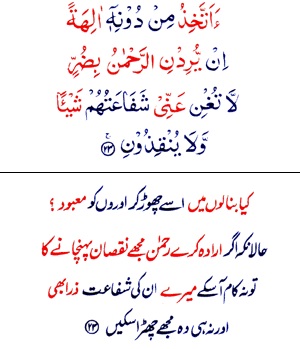 ءَاَتَّخِذُ مِنْ دُوْنِهٖۤ اٰلِهَةً
اِنْ يُّرِدْنِ الرَّحْمٰنُ بِضُرٍّ
لَّا تُغْنِ عَنِّىْ شَفَاعَتُهُمْ شَيْـًٔا
وَّلَا يُنْقِذُوْنِ ۚ ﴿۲۳﴾
کیا بنالوں میں اسے چھوڑ کر اوروں کو معبود ؟
حالانکہ اگر ارادہ کرے رحمٰن مجھے نقصان پہنچانے کا
تو نہ کام آسکے میرے ان کی شفاعت ذرا بھی
اور نہ ہی وہ مجھے چھڑا سکیں ﴿۲۳﴾